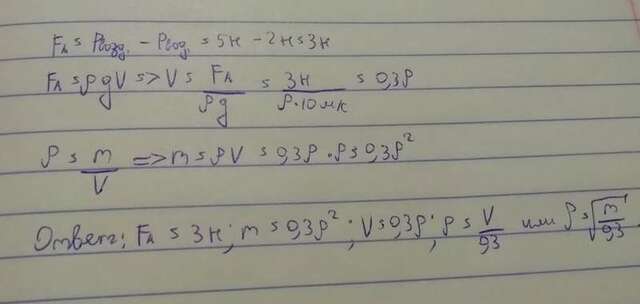 Fₐ = Pвозд. - Pвод. = 5н - 2н = 3н
Fₐ = ρgV => V = Fₐ/ρg = 3н/ρ·10 н/к = 0,3ρ
ρ = m/V => m = ρV = 0,3ρ · ρ = 0,3ρ²
Ответ: Fₐ = 3н; m = 0,3ρ²; V = 0,3ρ; ρ = V/0,3 или ρ = √m/0,3